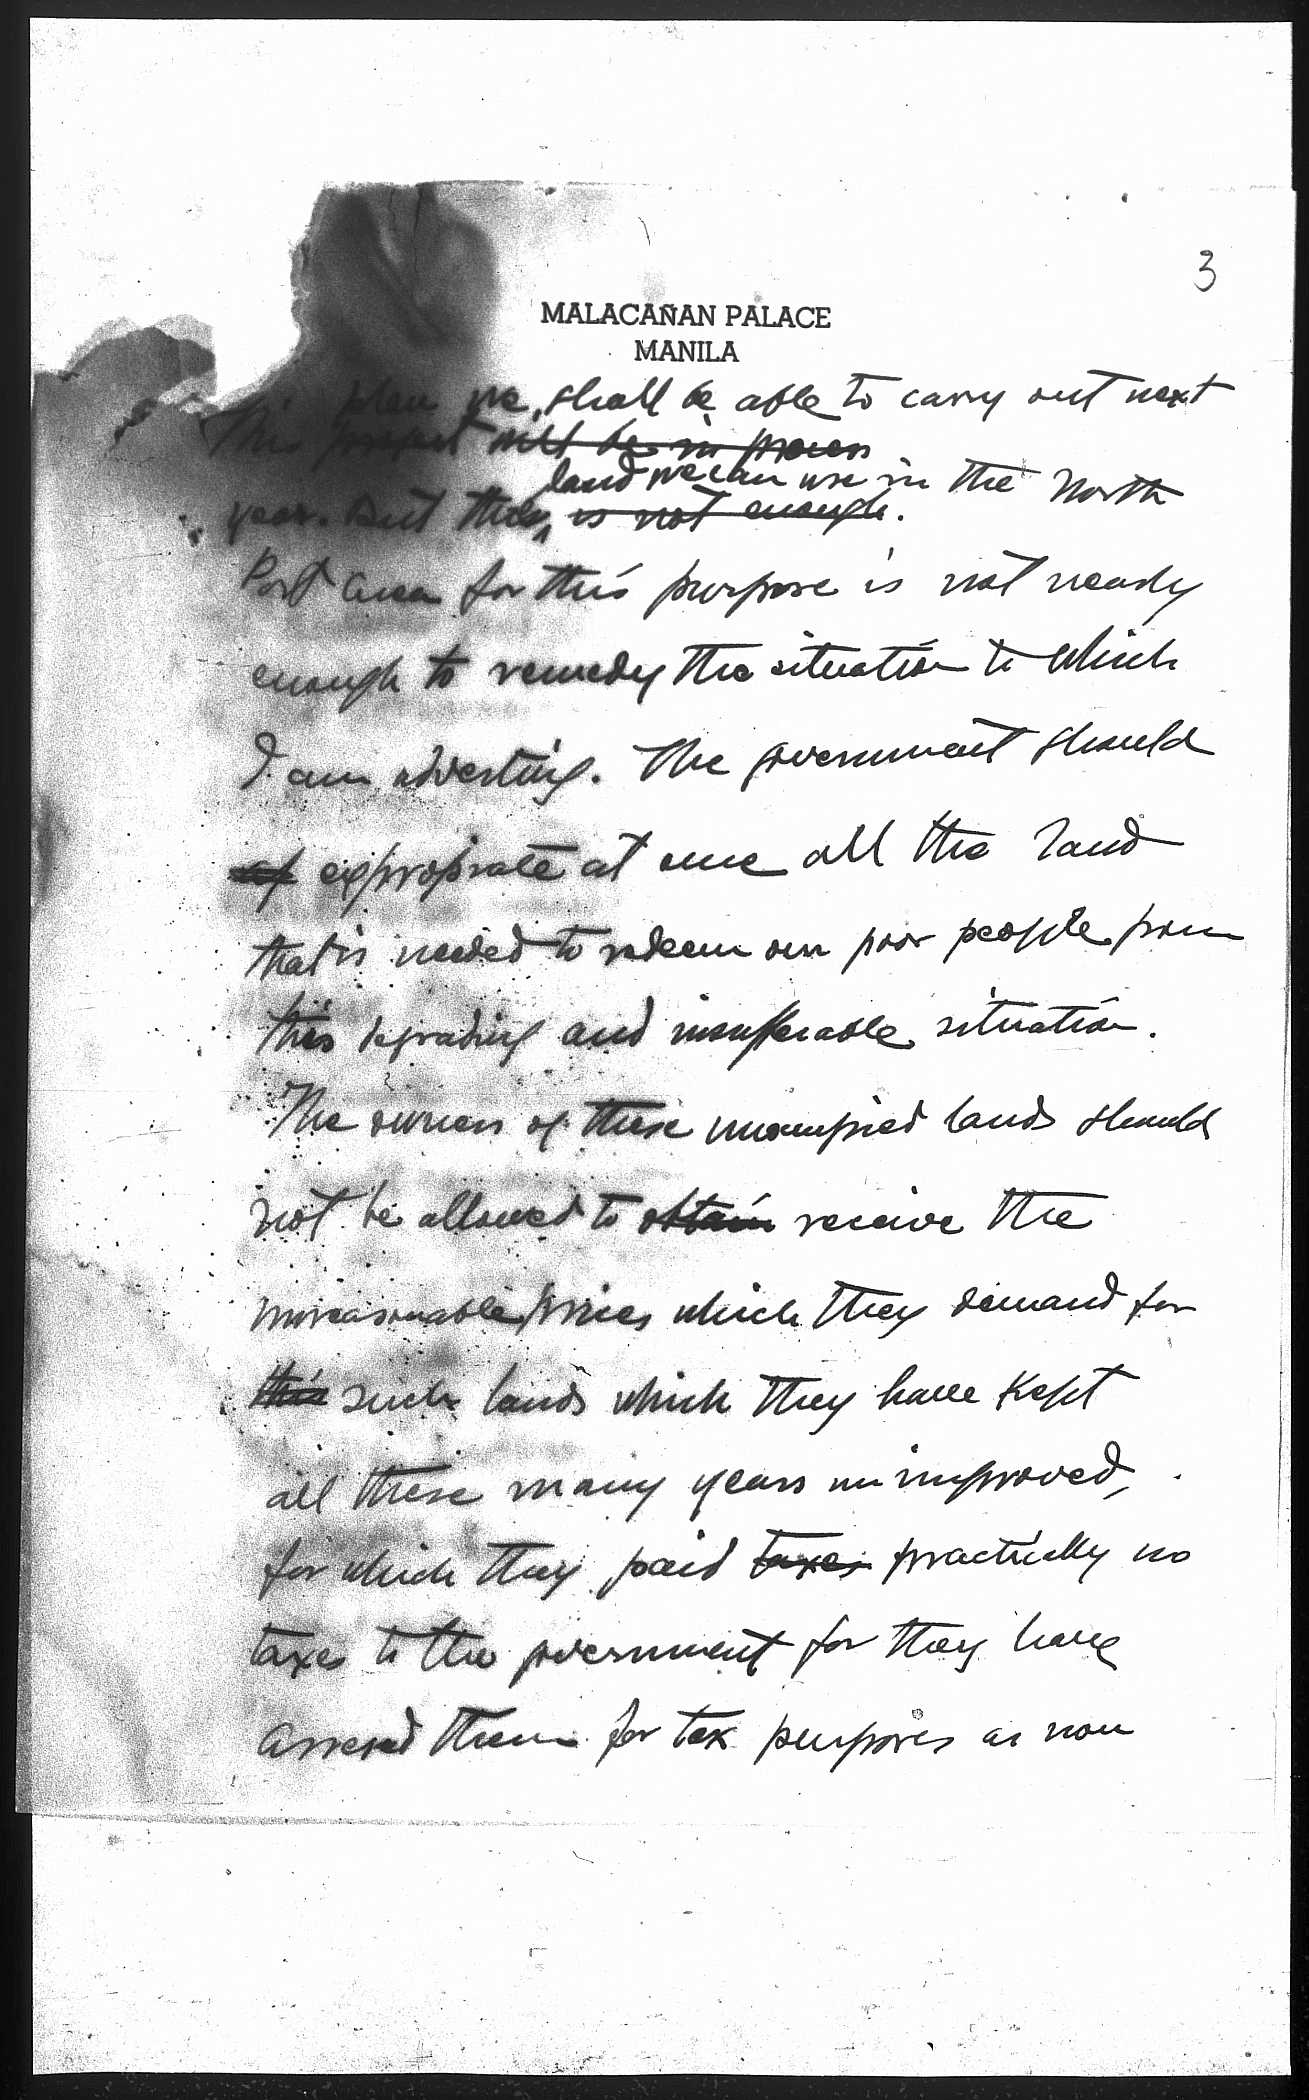 3
MALACAÑAN PALACE
MANILA
plan we shall be able to carry out next
This project will be in process
land we can use in the North
year. But the is not enough.
Port Area for this purpose is not nearly
enough to remedy the situation to which
I am adverting. The government should
ap expropriate at once all the land
that is needed to redeem our poor people from
this degrading and insufferable situation.
The owners of these unoccupied lands should
not be allowed to obtain receive the
unreasonable prices which they demand for
this such lands which they have kept
all these many years unimproved,
for which they paid taxes practically no
taxes to the government for they have
assessed them for tax purposes as non